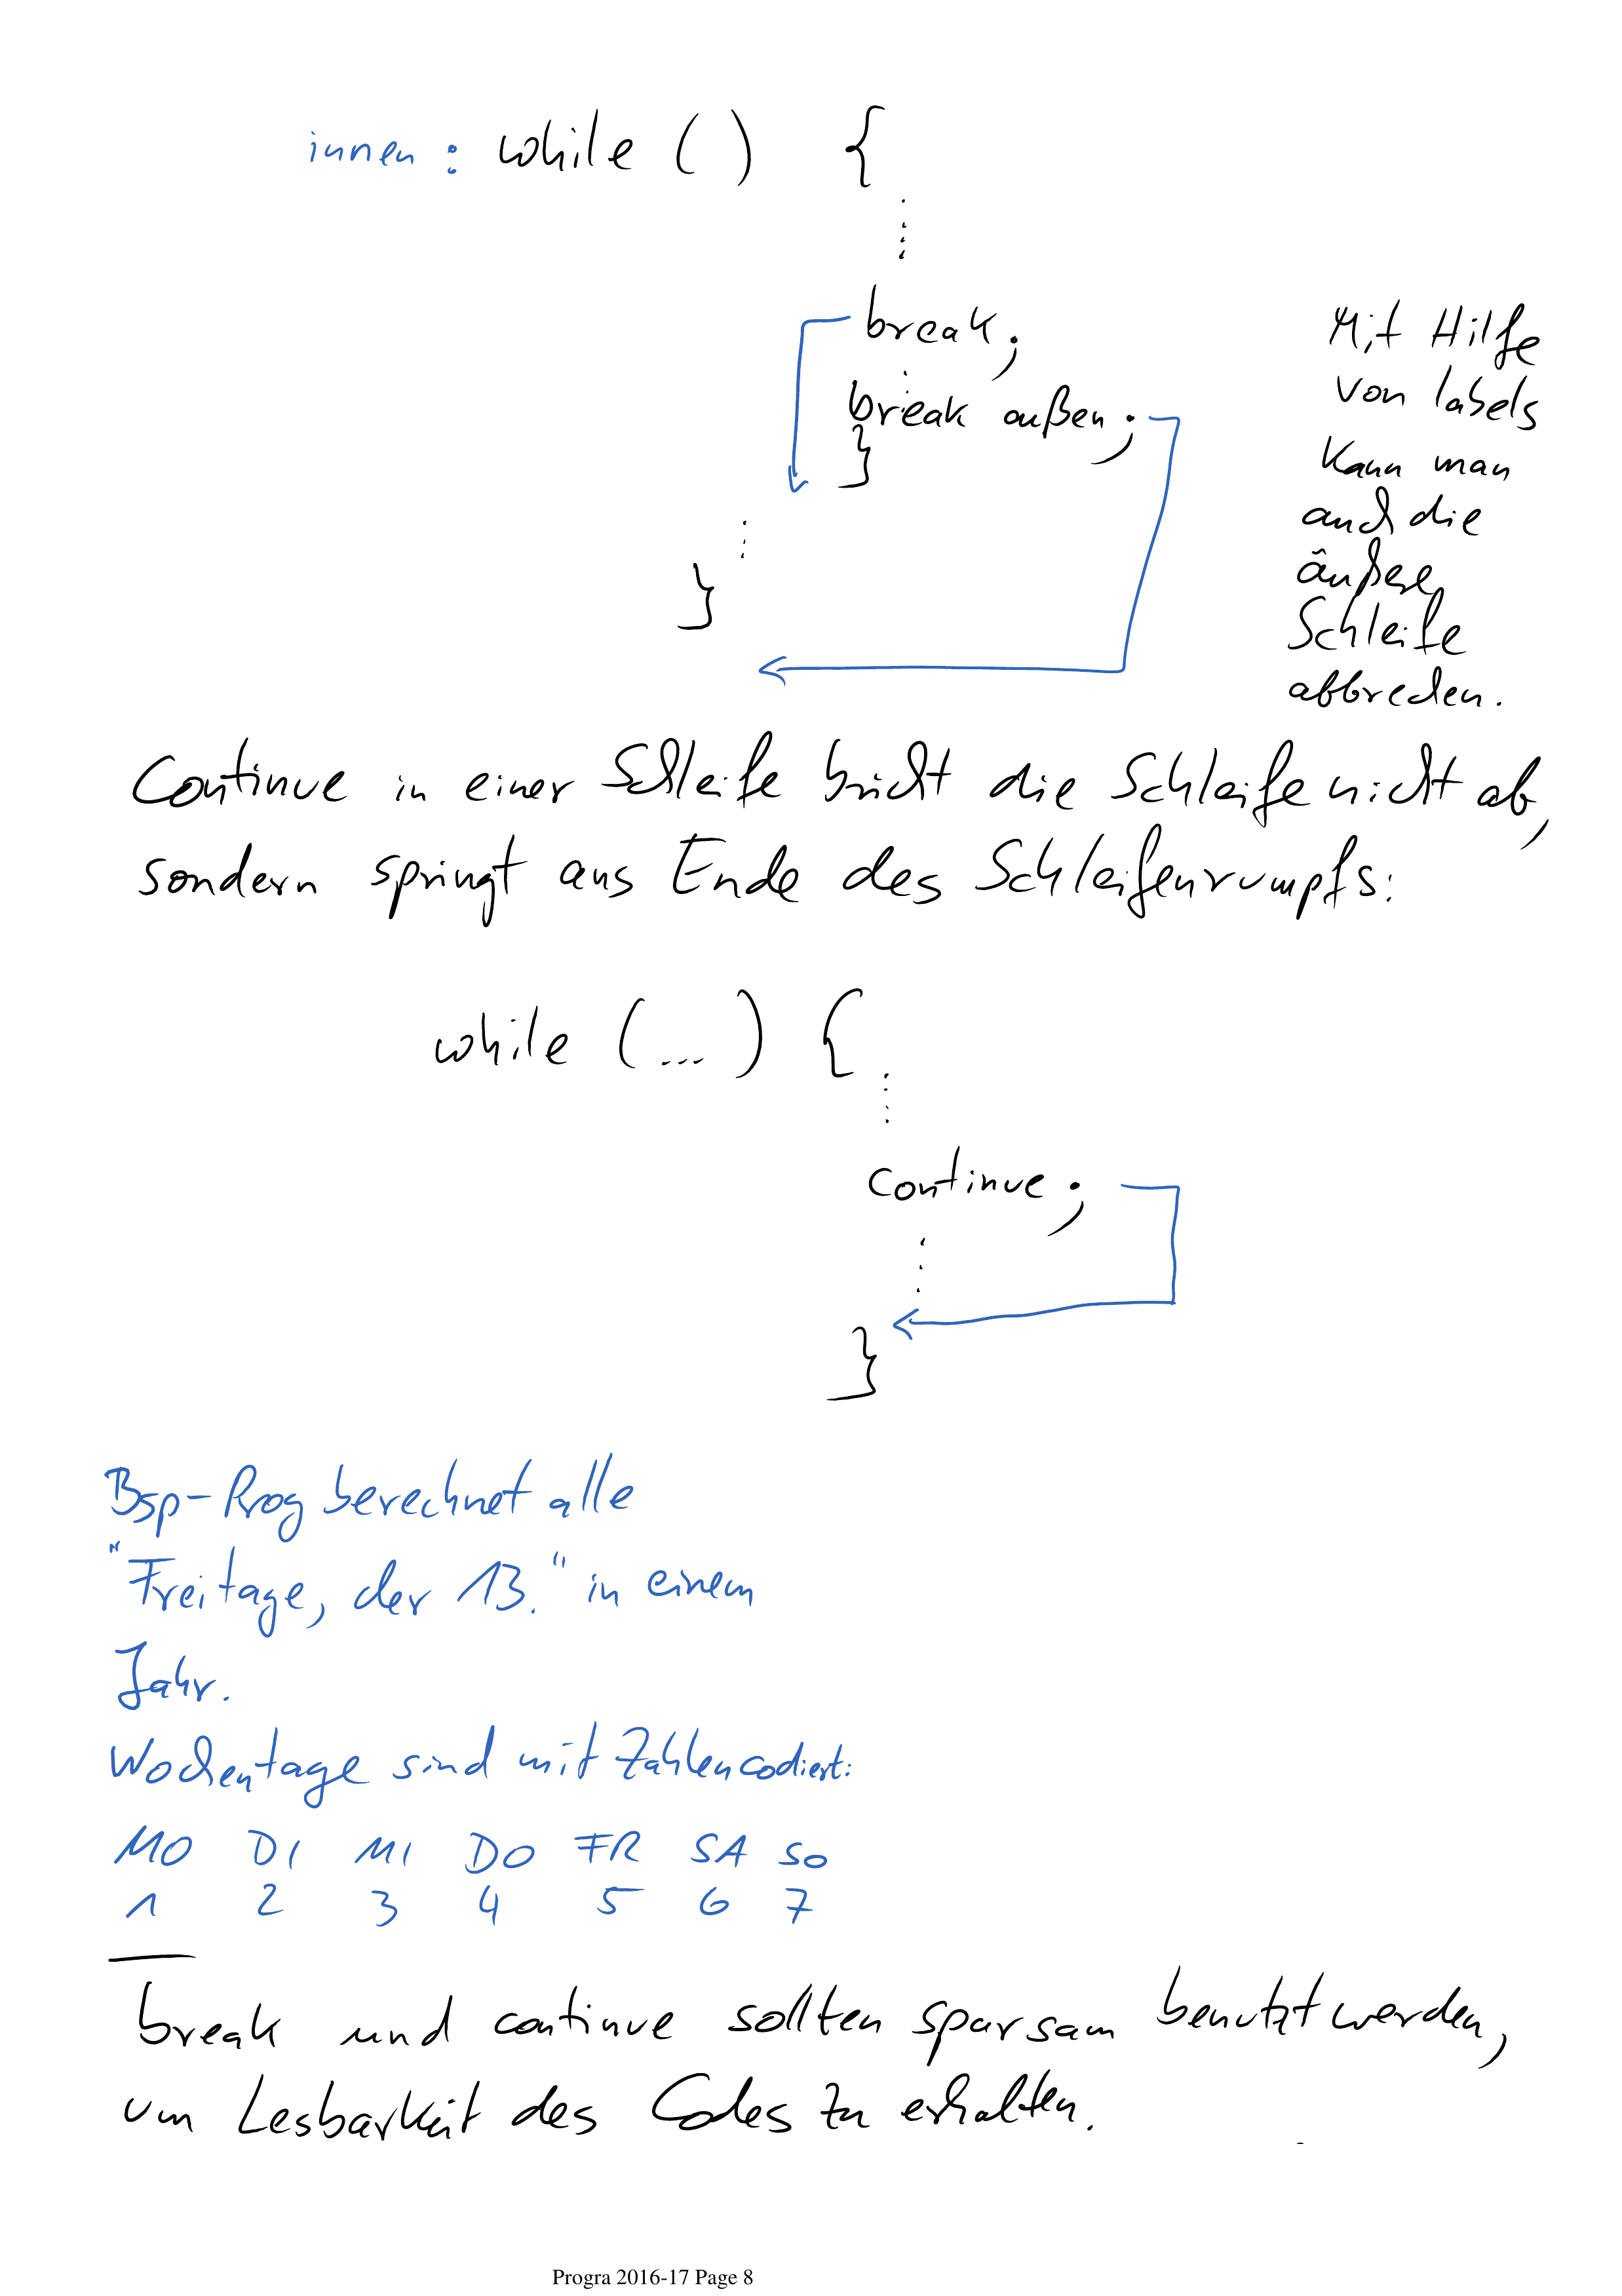 innen : while ( ) {
break;
break außen;
}
}
Mit Hilfe
von labels
kann man
auch die
äußere
Schleife
abbrechen.
Continue in einer Schleife bricht die Schleife nicht ab,
sondern springt ans Ende des Schleifenrumpfs:
while (...) {
continue;
}
Bsp-Prog berechnet alle
"Freitage, der 13." in einem
Jahr.
Wochentage sind mit Zahlen codiert:
MO DI MI DO FR SA SO
1 2 3 4 5 6 7
break und continue sollten sparsam benutzt werden,
um Lesbarkeit des Codes zu erhalten.
Progra 2016-17 Page 8